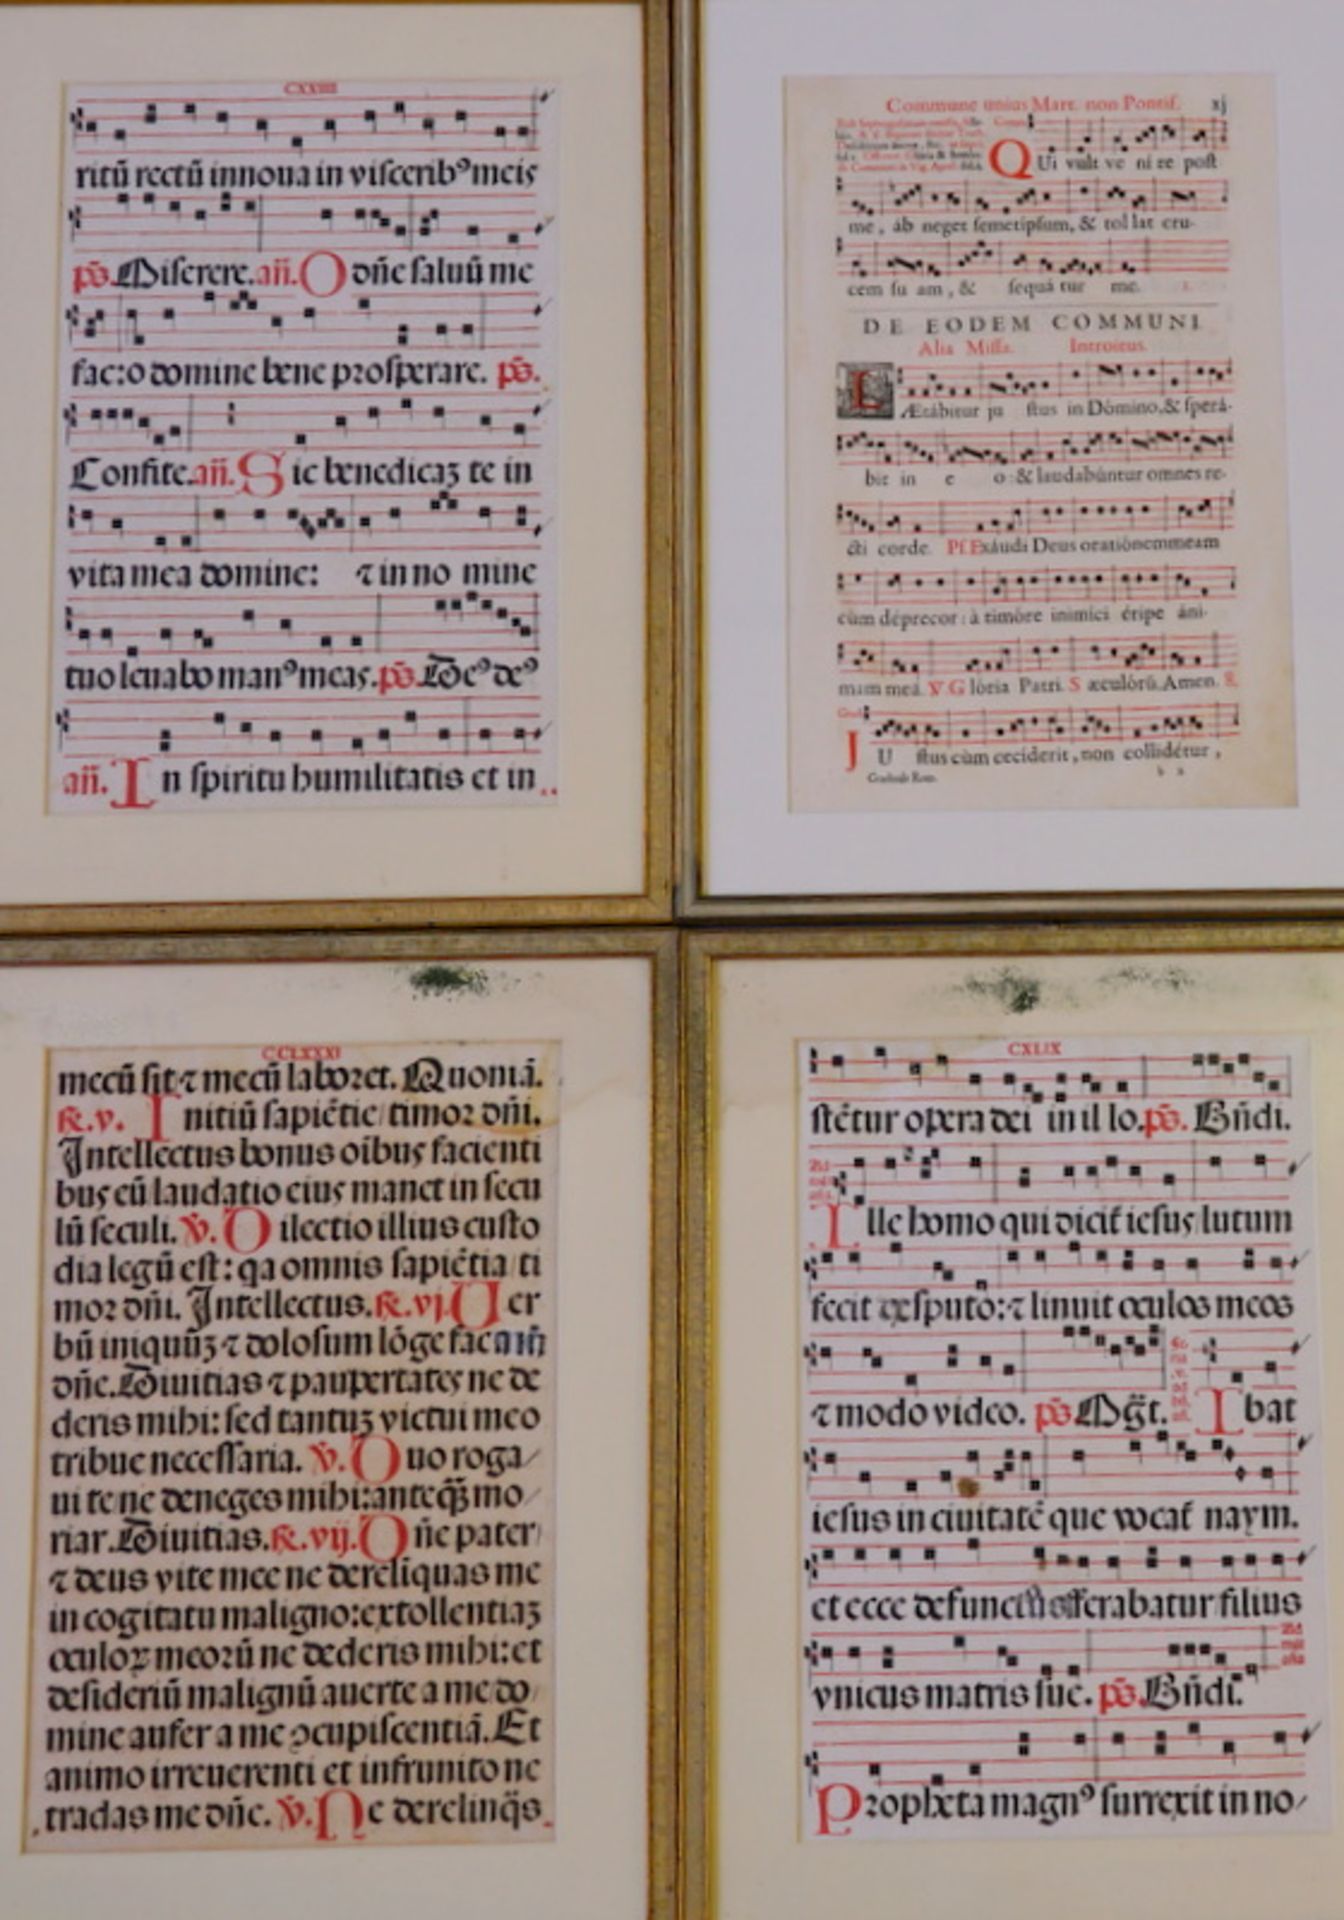 CXXIIII
ritū rectū innoua in viſcerib⁹ meis
pś. Miſerere. añ. O dñe ſaluū me
fac: o domine bene proſperare. pś.
Confite. añ. Sic benedicaʒ te in
vita mea domine: ⁊ in no mine
tuo leuabo man⁹ meas. pś. De⁹ de⁹
añ. In ſpiritu humilitatis et in
Commune unius Mart. non Pontif. xj
QUi vult ve ni re poſt
me, áb neget ſemetípſum, & tol lat cru-
cem ſu am, & ſequá tur me.
DE EODEM COMMUNI
Alia Miſſa. Introitus.
LÆtábitur ju ſtus in Dómino, & ſperá-
bit in e o: & laudabúntur omnes re-
cti corde. Pſ. Exáudi Deus oratiónem meam
cùm déprecor: à timóre inimíci éripe áni-
mam meá. V. Glória Patri. Sæculórū. Amen.
JUſtus cùm cecíderit, non collidétur,
Graduale Rom. b 2
CCLXXXI
mecū ſit ⁊ mecū laboret. Quoniā.
℞. v. Initiū ſapiētie timor dñi.
Intellectus bonus oībus facienti
bus eū laudatio eius manet in ſecu
lū ſeculi. ℣. Dilectio illius cuſto
dia legū eſt: qa omnis ſapiētia ti
mor dñi. Intellectus. ℞. vj. Uer
bū iniquūʒ ⁊ doloſum lōge fac a m̄
dñe. Diuitias ⁊ paupertates ne de
deris mihi: ſed tantuʒ victui meo
tribue neceſſaria. ℣. Duo roga/
ui te ne deneges mihi: anteq̄ʒ mo/
riar. Diuitias. ℞. vij. Dñe pater
⁊ deus vite mee ne derelīquas me
in cogitatu maligno: extollentiaʒ
oculoꝝ meorū ne dederis mihi: et
deſideriū malignū auerte a me do/
mine aufer a me ꝯcupiſcentiā. Et
animo irreuerenti et infrunito ne
tradas me dñe. ℣. Ne derelinq̄s
CXLIX
ſtētur opera dei in il lo. pś. Bñdi.
Ille homo qui dicit᷑ ieſus lutum
fecit ex ſputo: ⁊ linuit oculos meos
⁊ modo video. pś Mḡt. Ibat
ieſus in ciuitatē que vocat᷑ naym.
et ecce defunctus efferabatur filius
vnicus matris ſue. pś. Bñdi.
Propheta magn⁹ ſurrexit in no/